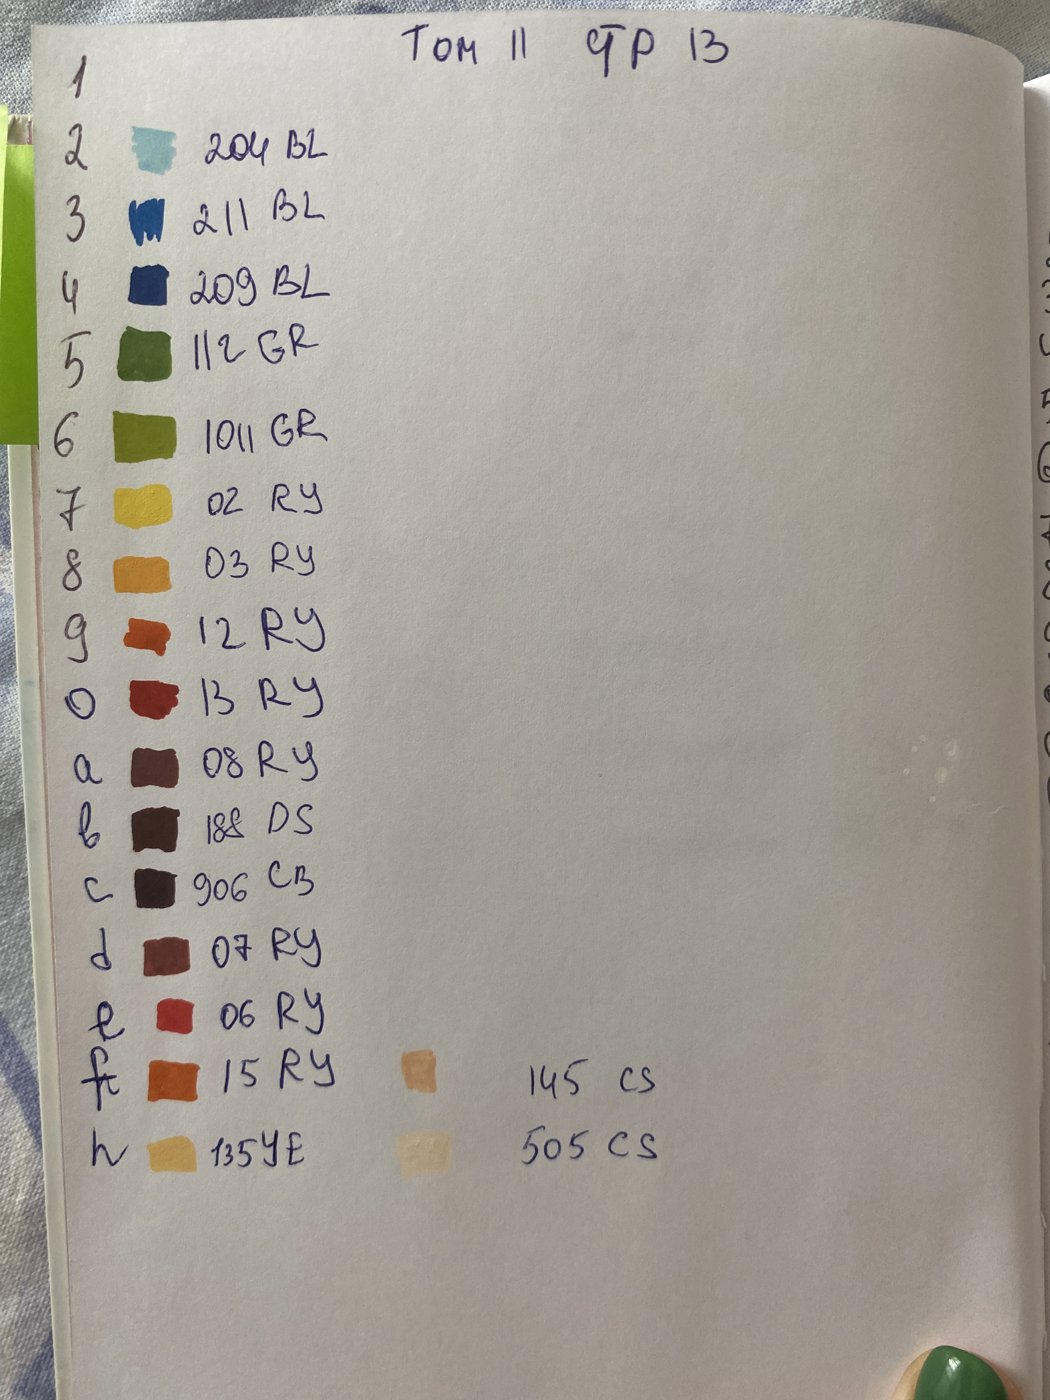 Том II стр 13
1
2 204 BL
3 211 BL
4 209 BL
5 112 GR
6 1011 GR
7 02 RY
8 03 RY
9 12 RY
0 13 RY
a 08 RY
b 188 DS
c 906 CB
d 07 RY
e 06 RY
f 15 RY 145 CS
h 135 YE 505 CS